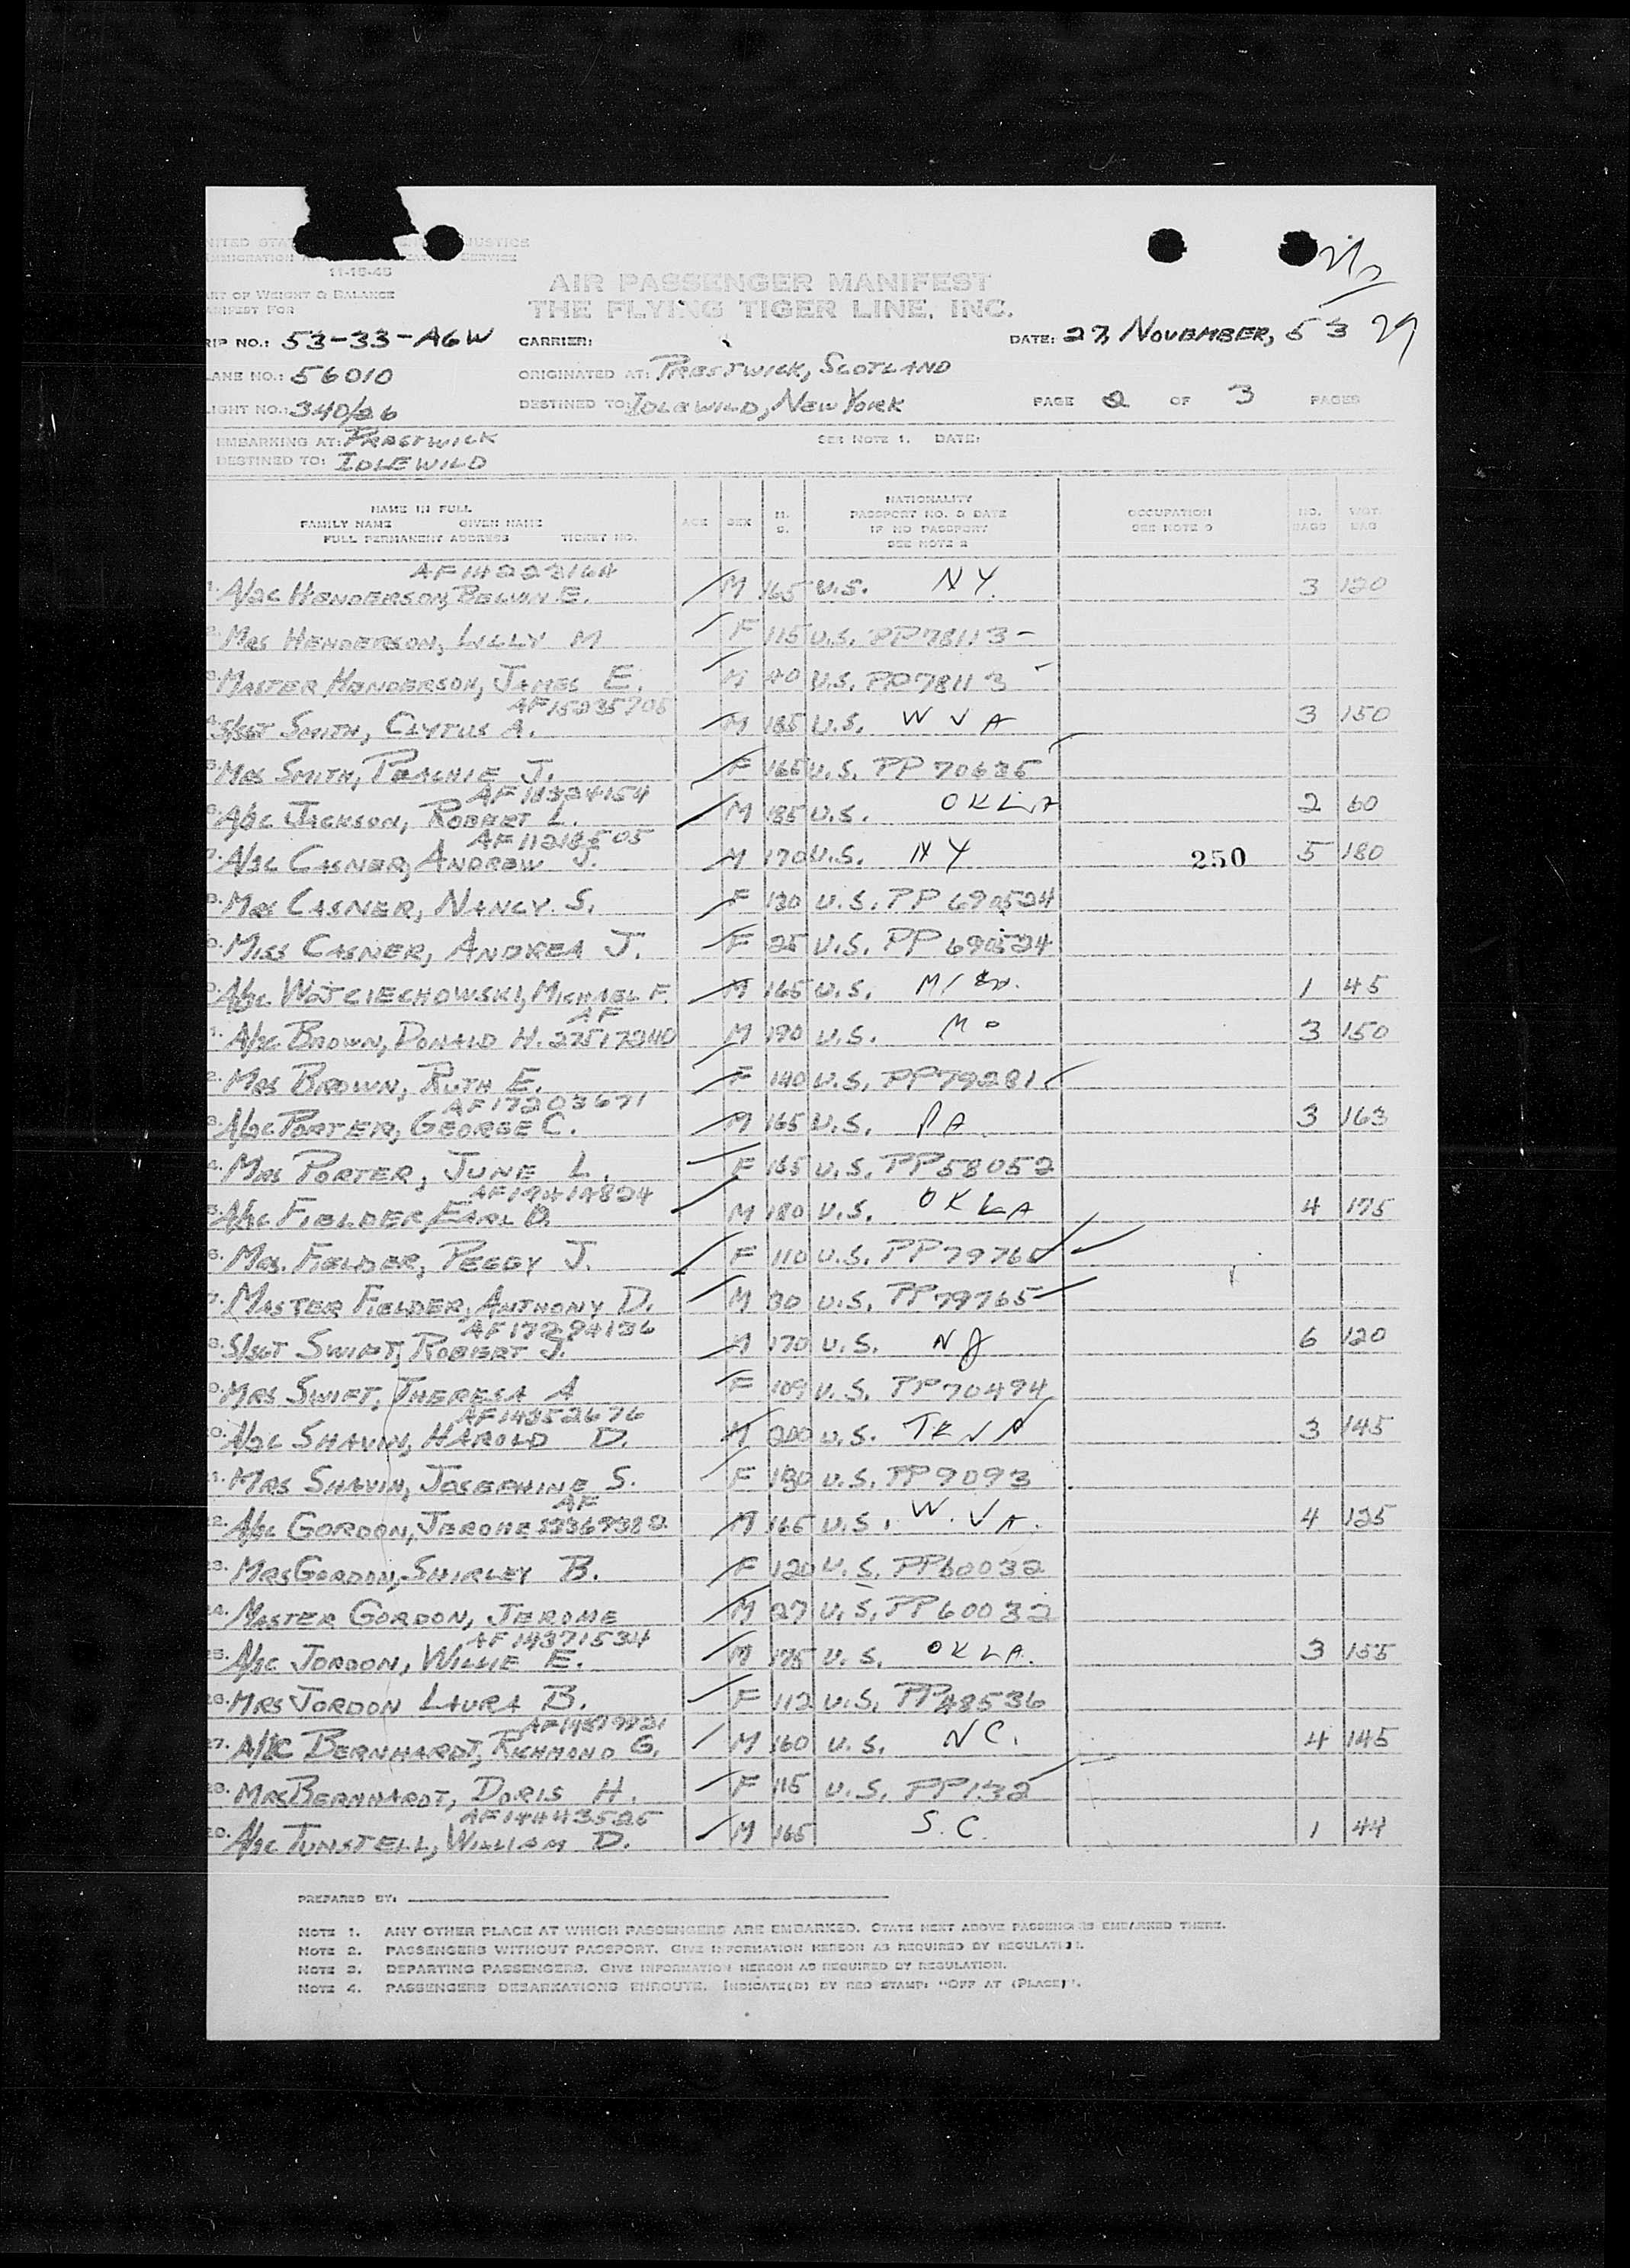 NITED STAT JUSTICE
11-15-45
ART OF WEIGHT & BALANCE
ANIFEST FOR
AIR PASSENGER MANIFEST
THE FLYING TIGER LINE, INC.
RIP NO.: 53-33-AGW CARRIER: DATE: 27, NOVEMBER, 53 29
LANE NO.: 56010 ORIGINATED AT: PRESTWICK, SCOTLAND
LIGHT NO.: 340/26 DESTINED TO: IDLEWILD, NEW YORK PAGE 2 OF 3 PAGES
EMBARKING AT: PRESTWICK SEE NOTE 1. DATE:
DESTINED TO: IDLEWILD
NAME IN FULL
FAMILY NAME GIVEN NAME
FULL PERMANENT ADDRESS TICKET NO.
AGE SEX
NATIONALITY
PASSPORT NO. & DATE
IF NO PASSPORT
SEE NOTE 2
OCCUPATION
SEE NOTE 3
NO. BAGS
WGT. BAG
AF14223164
1. A/2C HENDERSON, BELVIN E. M 165 U.S. NY. 3 120
MRS HENDERSON, LILLY M F 115 U.S. PP78113 -
MASTER HENDERSON, JAMES E. M 40 U.S. PP78113
AF15235705
S/SGT SMITH, CLYTUS A. M 185 U.S. W VA 3 150
MRS SMITH, PEACHIE J. F 165 U.S. PP 70635
AF18324154
A/2C JACKSON, ROBERT L. M 185 U.S. OKLA 2 60
AF11218505
7. A/2C CASNER, ANDREW J. M 170 U.S. NY 250 5 180
MRS CASNER, NANCY S. F 130 U.S. PP 690524
MISS CASNER, ANDREA J. F 25 U.S. PP 690524
WOJCIECHOWSKI, MICHAEL F. M 165 U.S. 1 45
AF
1. A/2C BROWN, DONALD H. 27517240 M 190 U.S. MO 3 150
2. MRS BROWN, RUTH E. F 140 U.S. PP79281
AF17203671
3. A/2C PORTER, GEORGE C. M 165 U.S. PA 3 163
4. MRS PORTER, JUNE L. F 165 U.S. PP58052
AF19414824
A/2C FIELDER, EARL D. M 180 U.S. OKLA 4 175
6. MRS. FIELDER, PEGGY J. F 110 U.S. PP79765
7. MASTER FIELDER, ANTHONY D. M 30 U.S. PP79765
AF17294136
8. S/SGT SWIFT, ROBERT J. M 170 U.S. NJ 6 120
MRS SWIFT, THERESA A F 109 U.S. PP70494
AF14352676
0. A/2C SHAVIN, HAROLD D. M 200 U.S. TENN 3 145
1. MRS SHAVIN, JOSEPHINE S. F 130 U.S. PP9093
AF
22. A/2C GORDON, JEROME M 165 U.S. W. VA. 4 125
23. MRS GORDON, SHIRLEY B. F 120 U.S. PP60032
24. MASTER GORDON, JEROME M 27 U.S. PP60032
AF14371534
25. A/2C JORDON, WILLIE E. M 175 U.S. OKLA. 3 155
26. MRS JORDON LAURA B. F 112 U.S. PP48536
27. BERNHARDT, RICHMOND G. M 160 U.S. NC. 4 145
28. MRS BERNHARDT, DORIS H. F 115 U.S. PP132
AF14443525
A/2C TUNSTELL, WILLIAM D. M 165 S.C. 1 44
PREPARED BY:
NOTE 1. ANY OTHER PLACE AT WHICH PASSENGERS ARE EMBARKED. STATE NEXT ABOVE PASSENGERS EMBARKED THERE.
NOTE 2. PASSENGERS WITHOUT PASSPORT. GIVE INFORMATION HEREON AS REQUIRED BY REGULATION.
NOTE 3. DEPARTING PASSENGERS. GIVE INFORMATION HEREON AS REQUIRED BY REGULATION.
NOTE 4. PASSENGERS DEBARKATIONS ENROUTE. INDICATE(D) BY RED STAMP: "OFF AT (PLACE)".